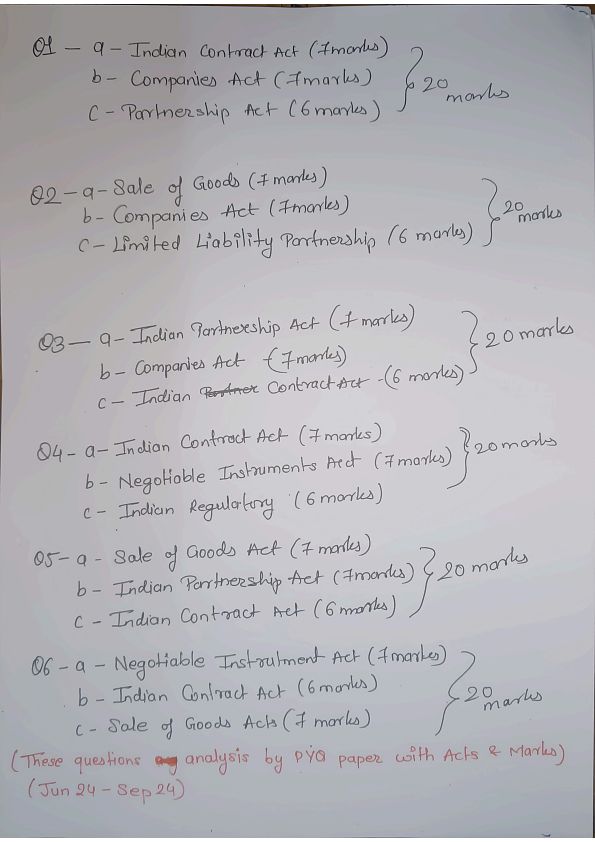 Q1 - a - Indian Contract Act (7marks)
b - Companies Act (7marks)
C - Partnership Act (6marks)
20 marks
Q2 - a - Sale of Goods (7 marks)
b - Companies Act (7marks)
C - Limited Liability Partnership (6 marks)
20 marks
Q3 - a - Indian Partnereship Act (7 marks)
b - Companies Act (7marks)
c - Indian Partner Contract Act - (6 marks)
20 marks
Q4 - a - Indian Contract Act (7 marks)
b - Negotiable Instruments Act (7 marks)
c - Indian Regulatory (6 marks)
20 marks
Q5 - a - Sale of Goods Act (7 marks)
b - Indian Partnership Act (7marks)
c - Indian Contract Act (6 marks)
20 marks
Q6 - a - Negotiable Instrutment Act (7marks)
b - Indian Contract Act (6marks)
c - Sale of Goods Acts (7 marks)
20 marks
(These questions analysis by PYQ paper with Acts & Marks)
(Jun 24 - Sep 24)